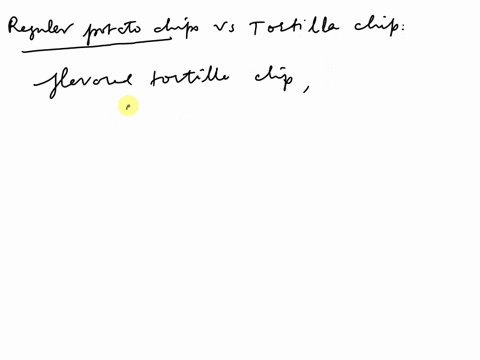 Reguler potato chips vs Tortilla chip:
flavored tortille chip,